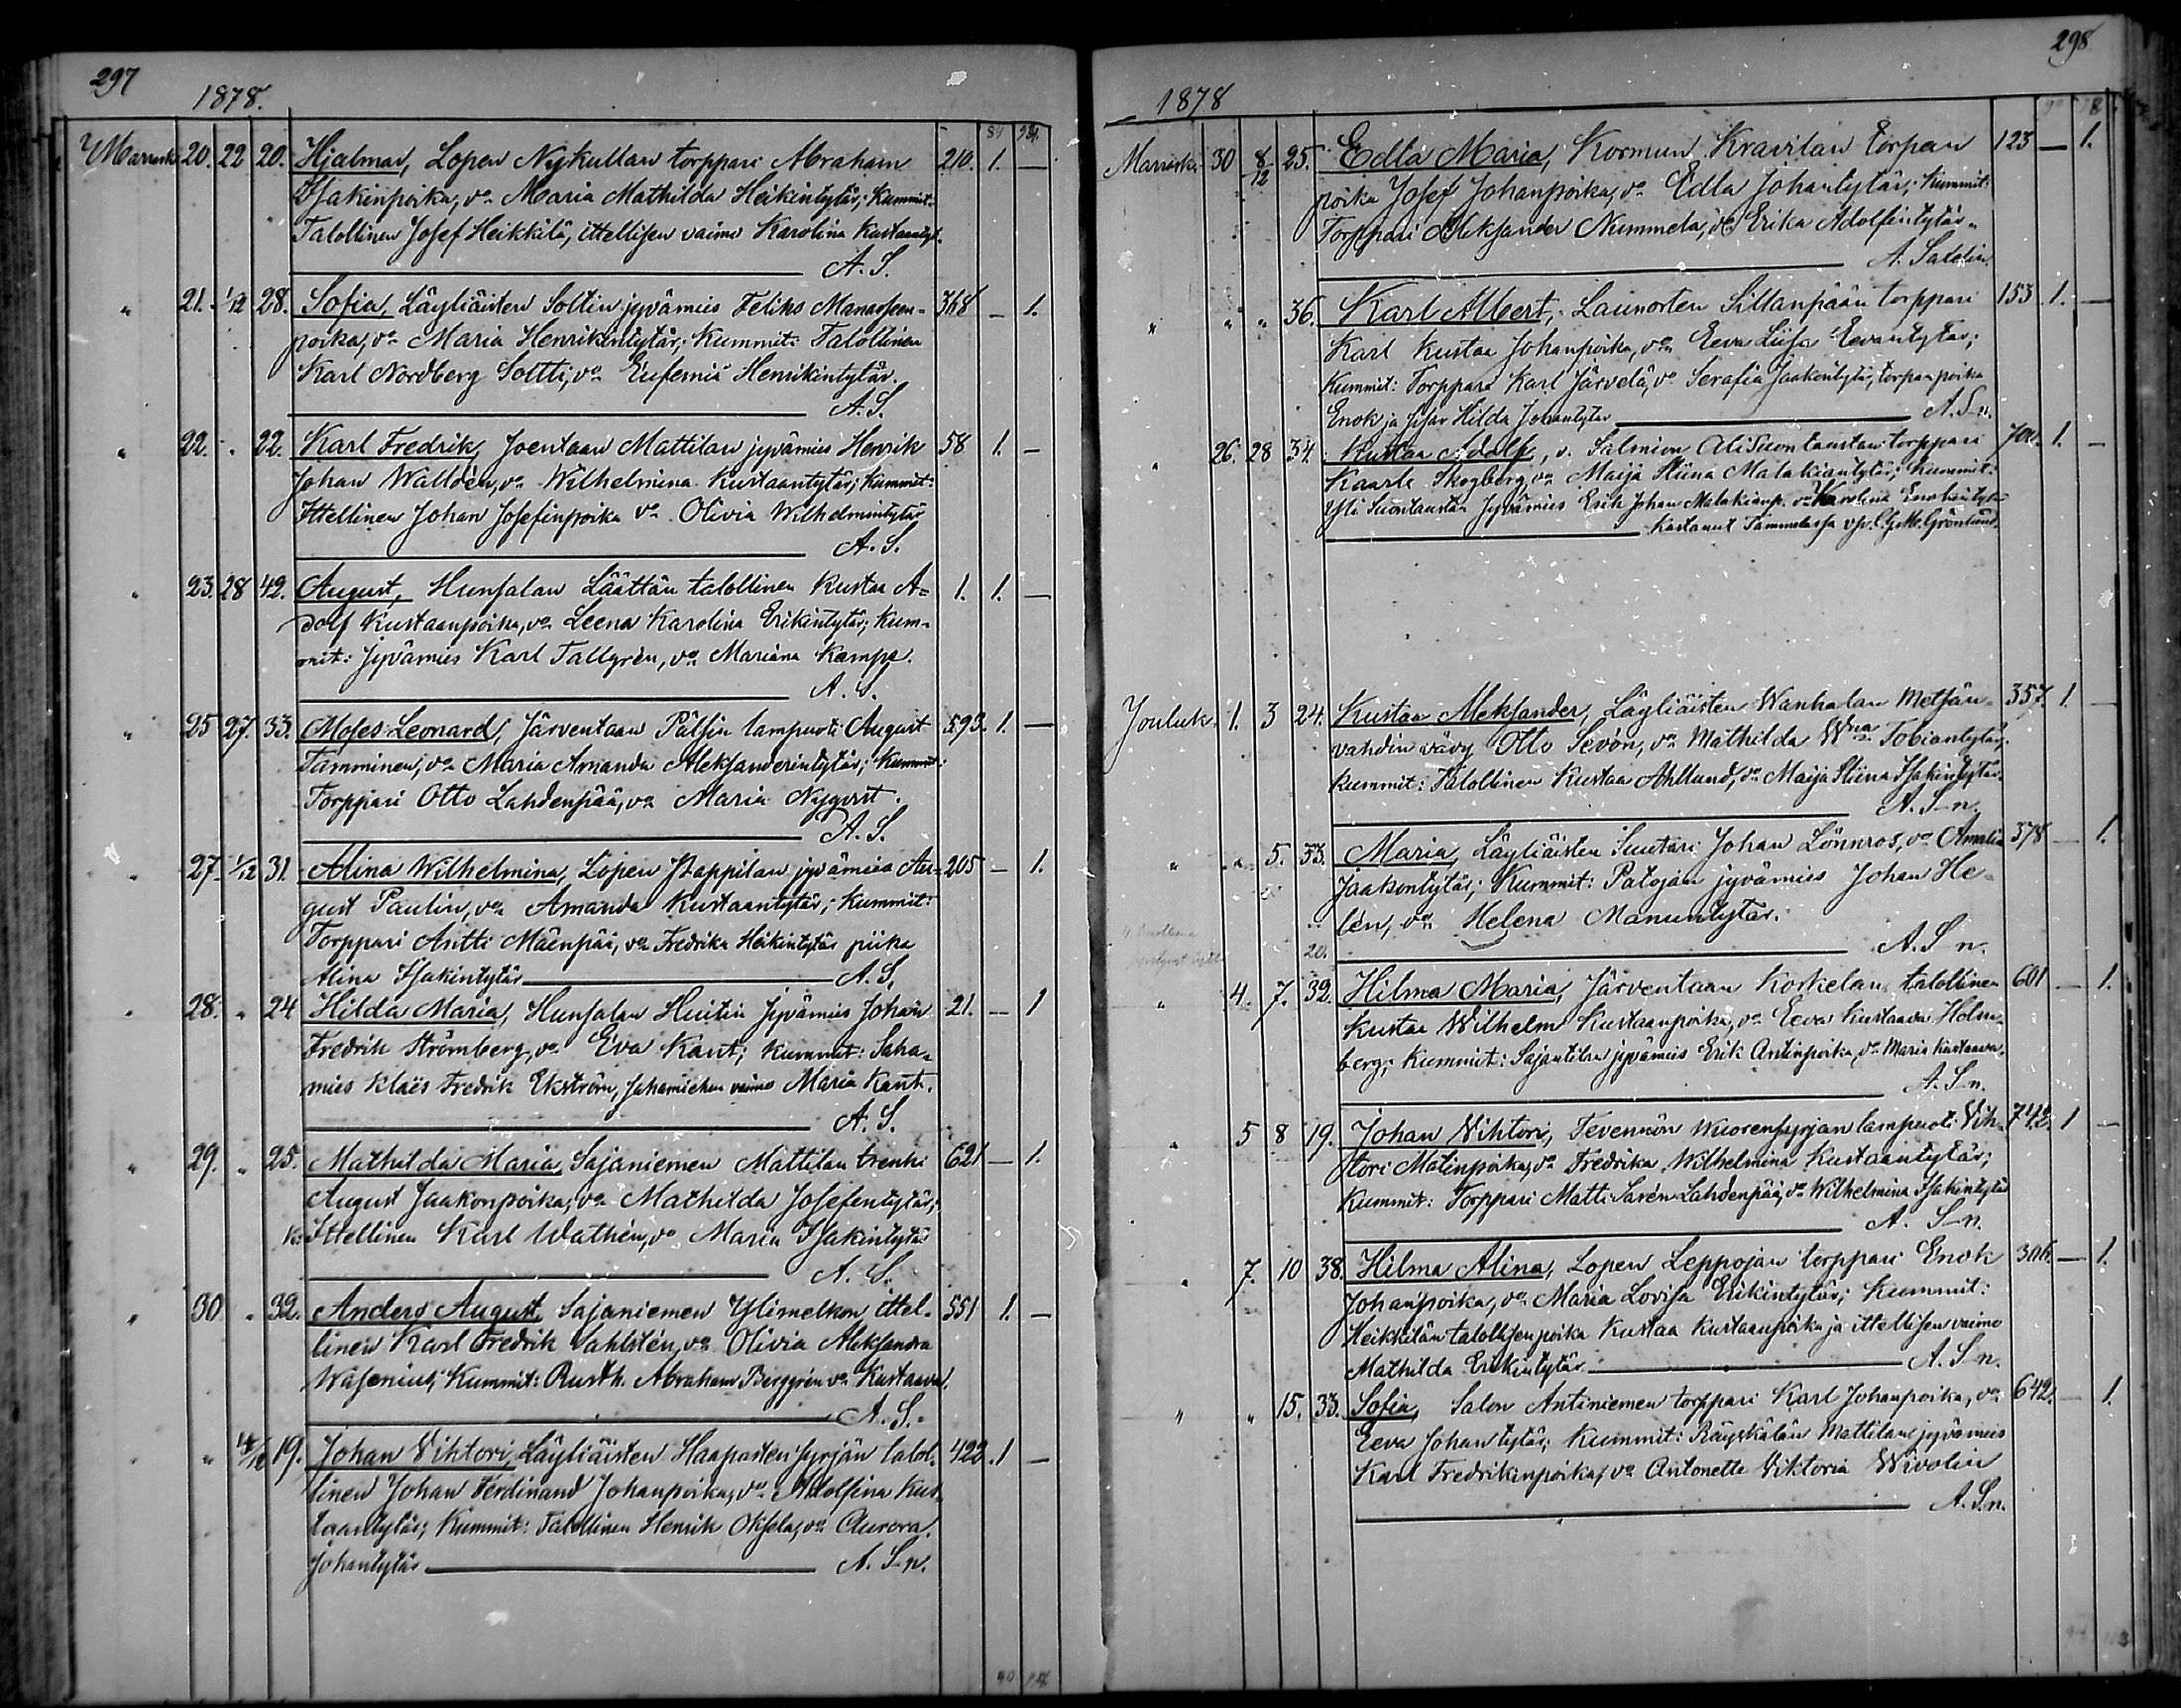 297
1878.
84 934
Marrask. 20. 22 20. Hjalmar, Lopen Nykullan torppari Abraham 210. 1. —
Isakinpoika, vo Maria Mathilda Heikintytär; Kummit:
Talollinen Josef Heikkilä, ittellisen vaimo Karolina Kustaantyt.
A. S.
" 21. 1/12 28. Sofia, Läyliäisten Soltin jyvämies Feliks Manassen- 368 — 1.
poika, vo Maria Henrikintytär; Kummit: Talollinen
Karl Nordberg Soltti, vo Eufemia Henrikintytär.
A. S.
" 22. " 22. Karl Fredrik, Joentaan Mattilan jyvämies Henrik 58 1. —
Johan Walldén, vo Wilhelmina Kustaantytär; Kummit:
Ittellinen Johan Josefinpoika vo Olivia Wilhelmintytär
A. S.
" 23. 28 42. August, Hunsalan Läättän talollinen Kustaa A= 1. 1. —
dolf Kustaanpoika, vo Leena Karolina Erikintytär; Kum-
mit: Jyvämies Karl Tallgrén, vo Mariana Kamps.
A. S.
" 25 27. 33. Moses Leonard, Järventaan Pälsin lampuoti August 593. 1. —
Tamminen, vo Maria Amanda Aleksanderintytär; Kummit:
Torppari Otto Lahdenpää, vo Maria Nyqvist.
A. S.
" 27. 1/12 31. Alina Wilhelmina, Lopen Pappilan jyvämies Au- 205 — 1.
gust Paulin, vo Amanda Kustaantytär; Kummit:
Torppari Antti Mäenpää, vo Fredrika Heikintytär piika
Alina Isakintytär A. S.
" 28. " 24 Hilda Maria, Hunsalan Huitin Jyvämies Johan 21. — 1
Fredrik Strömberg, vo Eva Kant; Kummit: Saha-
mies Klaës Fredrik Ekström, sahamiehen vaimo Maria Kant.
A. S.
" 29. " 25. Mathilda Maria, Sajaniemen Mattilan trenki 621 — 1.
August Jaakonpoika, vo Mathilda Josefintytär;
K: Ittellinen Karl Wathén, vo Maria Isakintytär
A. S.
" 30 " 32. Anders August, Sajaniemen Ylimelkon ittel- 551 1. —
linen Karl Fredrik Vahlstén, vo Olivia Aleksandra
Wasenius; Kummit: Rusth. Abraham Berggrén vo Kustaava.
A. S.
" " 4/12 19. Johan Vihtori, Läyliäisten Haapasten syrjän talol- 422. 1 —
linen Johan Ferdinand Johanpoika, vo Adolfina Kus-
taantytär; Kummit: Talollinen Henrik Oksela, vo Aurora
Johantytär A. S-n.
298
1878
Marrask. 30 8/12 25. Edla Maria, Kormun Kravilan torpan 123 — 1.
poika Josef Johanpoika, vo Edla Johantytär; Kummit:
Torppari Aleksander Nummela, vo Erika Adolfintytär.
A. Saldin.
" " " 36. Karl Albert, Launosten Sillanpään torppari 153 1. —
Karl Kustaa Johanpoika, vo Eeva Liisa Eevantytär;
Kummit: Torppari Karl Järvelä, vo Serafia Jaakontytär, torpanpoika
Enok ja sisar Hilda Johantytär A. S-n.
" 26. 28 34. Kustaa Adolf, v. Salmion Ali Suontaustan torppari 700. 1. —
Kaarle Skogberg, vo Maija Stiina Malakiantytär; Kummit:
Yli Suontaustan Jyvämies Erik Johan Malakianp. vo Karolina Enokintytär
Kastanut Tammelassa vpr. C. G. M. Grönlund.
Jouluk. 1. 3 24. Kustaa Aleksander, Läyliäisten Wanhalan Metsän- 357. 1. —
vahdin vävy Otto Sevón, vo Mathilda Wna Tobiantytär;
Kummit: Talollinen Kustaa Ahllund, vo Maija Stiina Isakintytär.
A. S-n.
" " 5. 33. Maria, Läyliäisten Suutari Johan Lönnros, vo Amalia 378 — 1.
Jaakontytär; Kummit: Patojan jyvämies Johan He-
lén, vo Helena Manuntytär.
20. A. S-n.
" 4. 7. 32. Hilma Maria, Järventaan Koskelan talollinen 601 — 1.
Kustaa Wilhelm Kustaanpoika, vo Eeva Kustaava Holm-
berg; Kummit: Sajantilan jyvämies Erik Antinpoika, vo Maria Kustaava.
A. S-n.
" 5 8 19. Johan Vihtori, Tevennön Wuorensyrjan lampuoti Vih- 742. 1 —
tori Matinpoika, vo Fredrika Wilhelmina Kustaantytär;
Kummit: Torppari Matti Savén Lahdenpää, vo Wilhelmina Isakintytär
A. S-n.
" 7. 10 38. Hilma Alina, Lopen Leppojan torppari Enok 306. — 1.
Johanpoika, vo Maria Lovisa Erikintytär; Kummit:
Heikkilän talollisen poika Kustaa Kustaanpoika ja ittellisen vaimo
Mathilda Erikintytär A. S-n.
" " 15. 33. Sofia, Salon Antiniemen torppari Karl Johanpoika, vo 642. — 1.
Eeva Johantytär; Kummit: Räyskälän Mattilan jyvämies
Karl Fredrikinpoika, vo Antonette Viktoria Wivolin
A. S-n.